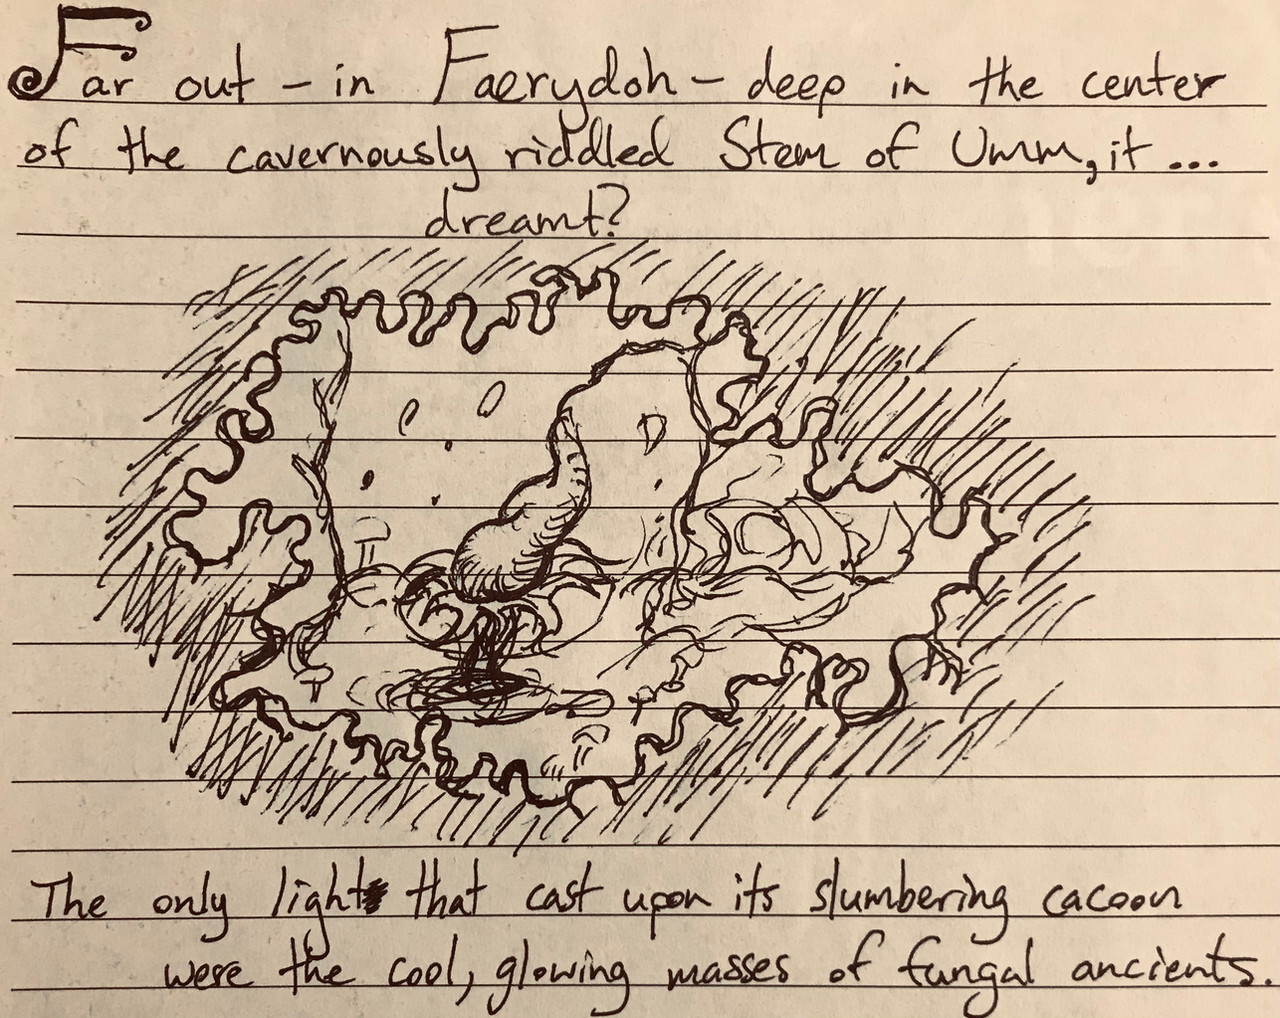 Far out – in Faerydoh – deep in the center
of the cavernously riddled Stem of Umm, it ...
dreamt?
The only light that cast upon its slumbering cacoon
were the cool, glowing masses of fungal ancients.